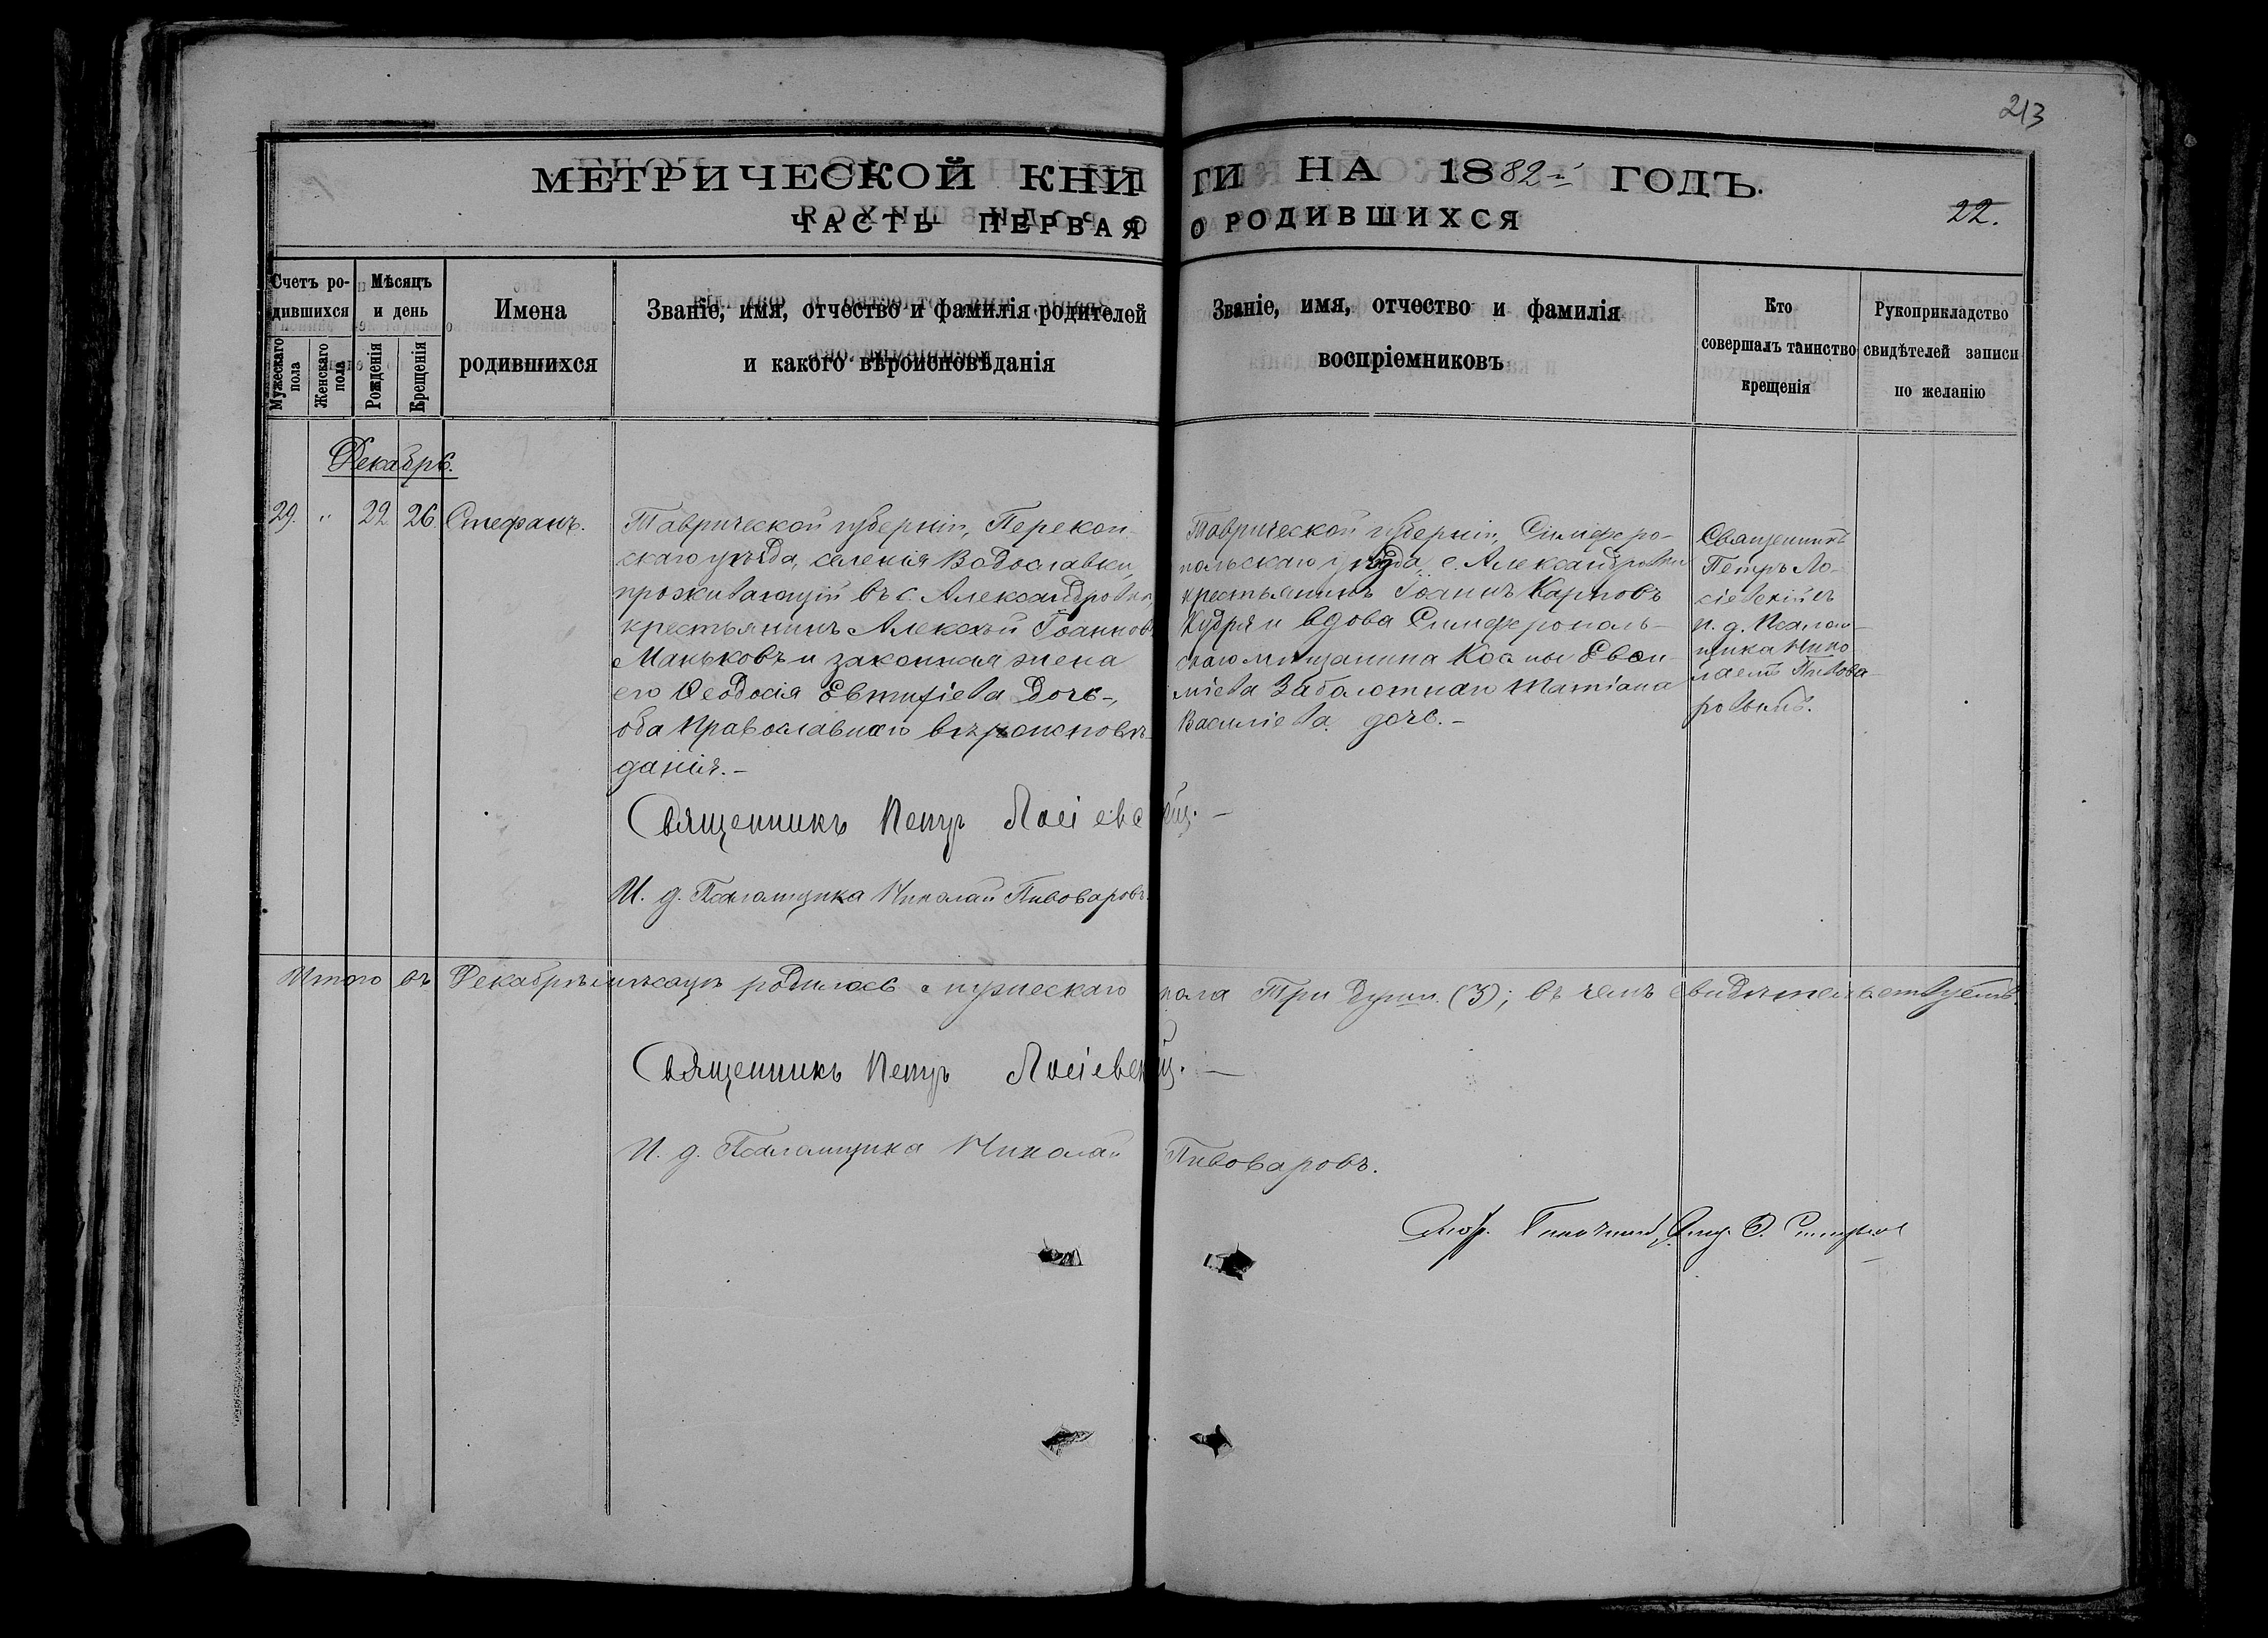 213
МЕТРИЧЕСКОЙ КНИГИ НА 1882й ГОДЪ.
ЧАСТЬ ПЕРВАЯ О РОДИВШИХСЯ
22.
Счетъ родившихся
Мужескаго пола
Женскаго пола
Мѣсяцъ и день
Рожденія
Крещенія
Имена
родившихся
Званіе, имя, отчество и фамилія родителей
и какого вѣроисповѣданія
Званіе, имя, отчество и фамилія
воспріемниковъ
Кто
совершалъ таинство
крещенія
Рукоприкладство
свидѣтелей записи
по желанію
Декабрь.
29. " 22 26 Стефанъ.
Таврической губерніи, Перекоп-
скаго уѣзда, селенія Водославки,
проживающій въ с. Александровкѣ,
крестьянинъ Алексѣй Іоанновъ
Маньковъ и законная жена
его Ѳеодосія Евтихіева дочь-,
оба Православнаго вѣроисповѣ-
данія.-
Таврической губерніи, Симферо-
польскаго уѣзда, с. Александровки
крестьянинъ Іоаннъ Карповъ
Кудря и вдова Симферополь-
скаго мѣщанина Космы
Заболотнаго Татіана
Василіева дочь.-
Священникъ
Петръ Ло-
сіевскій съ
и. д. Псалом-
щика Нико-
лаемъ Пивова-
ровымъ.
Священникъ Петръ Лосіевскій.-
И. д. Псаломщика Николай Пивоваровъ.
Итого въ Декабрѣ мѣсяцѣ родилось мужескаго пола Три души (3); въ чемъ свидѣтельствуетъ.
Священникъ Петръ Лосіевскій.-
И. д. Псаломщика Николай Пивоваровъ.